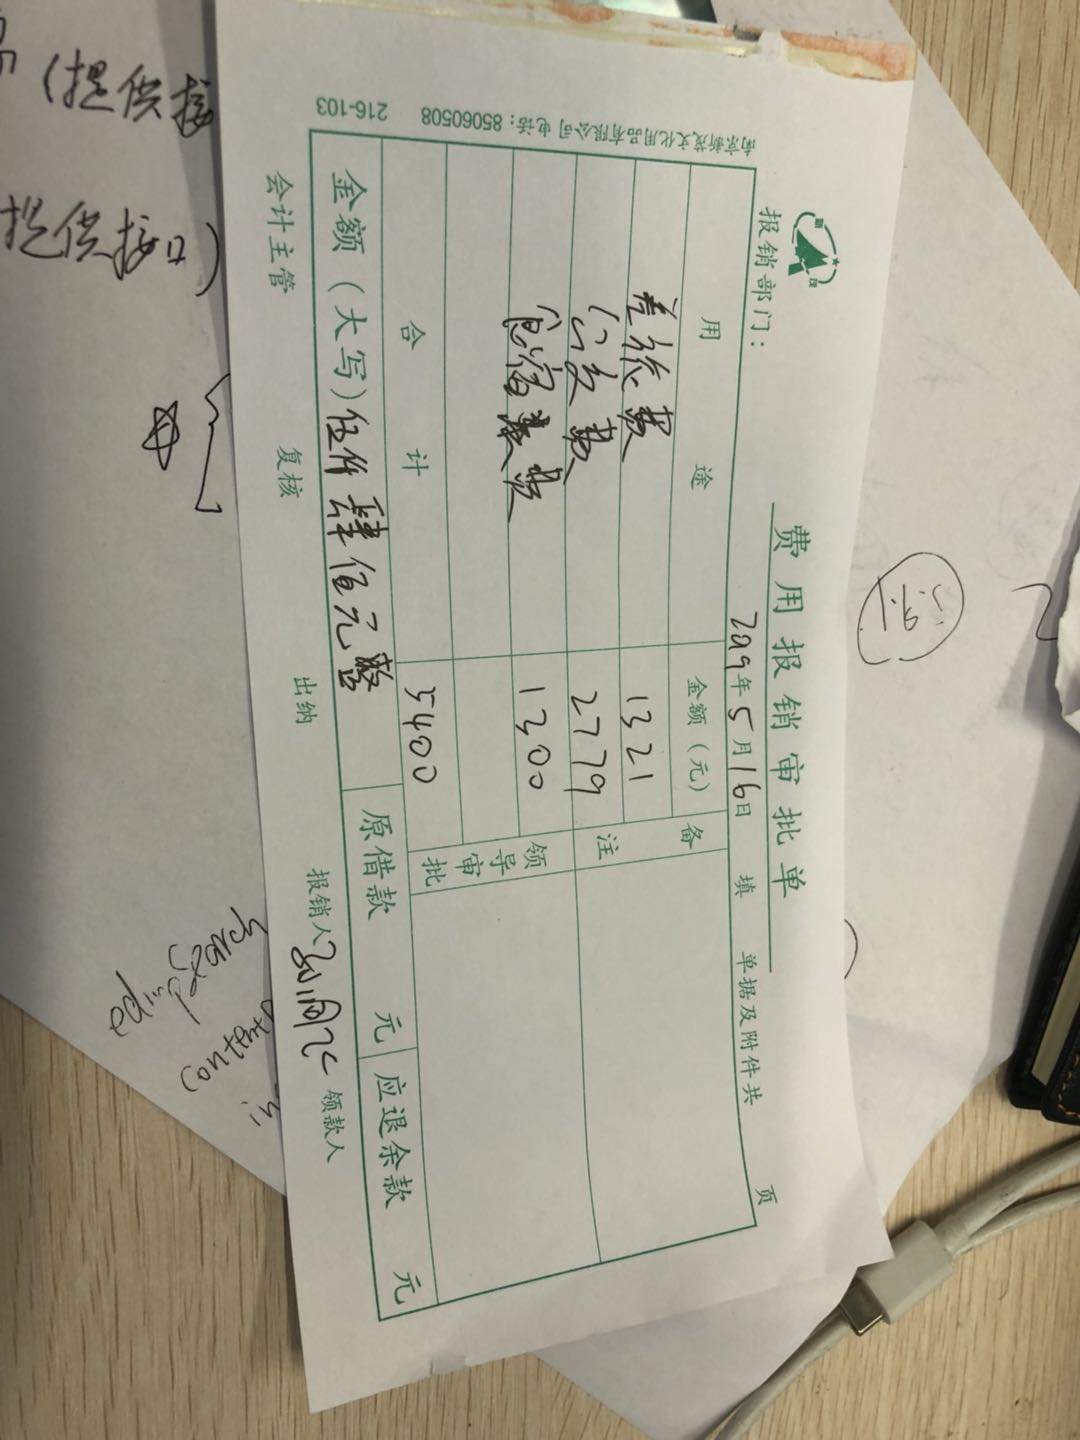 费用报销审批单
报销部门：
2019年5月16日 填
单据及附件共 页
用 途
金额（元）
备注
差旅费 1321
公交费 2779
食宿费 1300
领导审批
合 计 5400
金额（大写）伍仟肆佰元整
原借款 元
应退余款 元
会计主管
复核
出纳
报销人
领款人
南京新茂文化用品有限公司 电话：85060508 216-103
（提供接
提供接口）